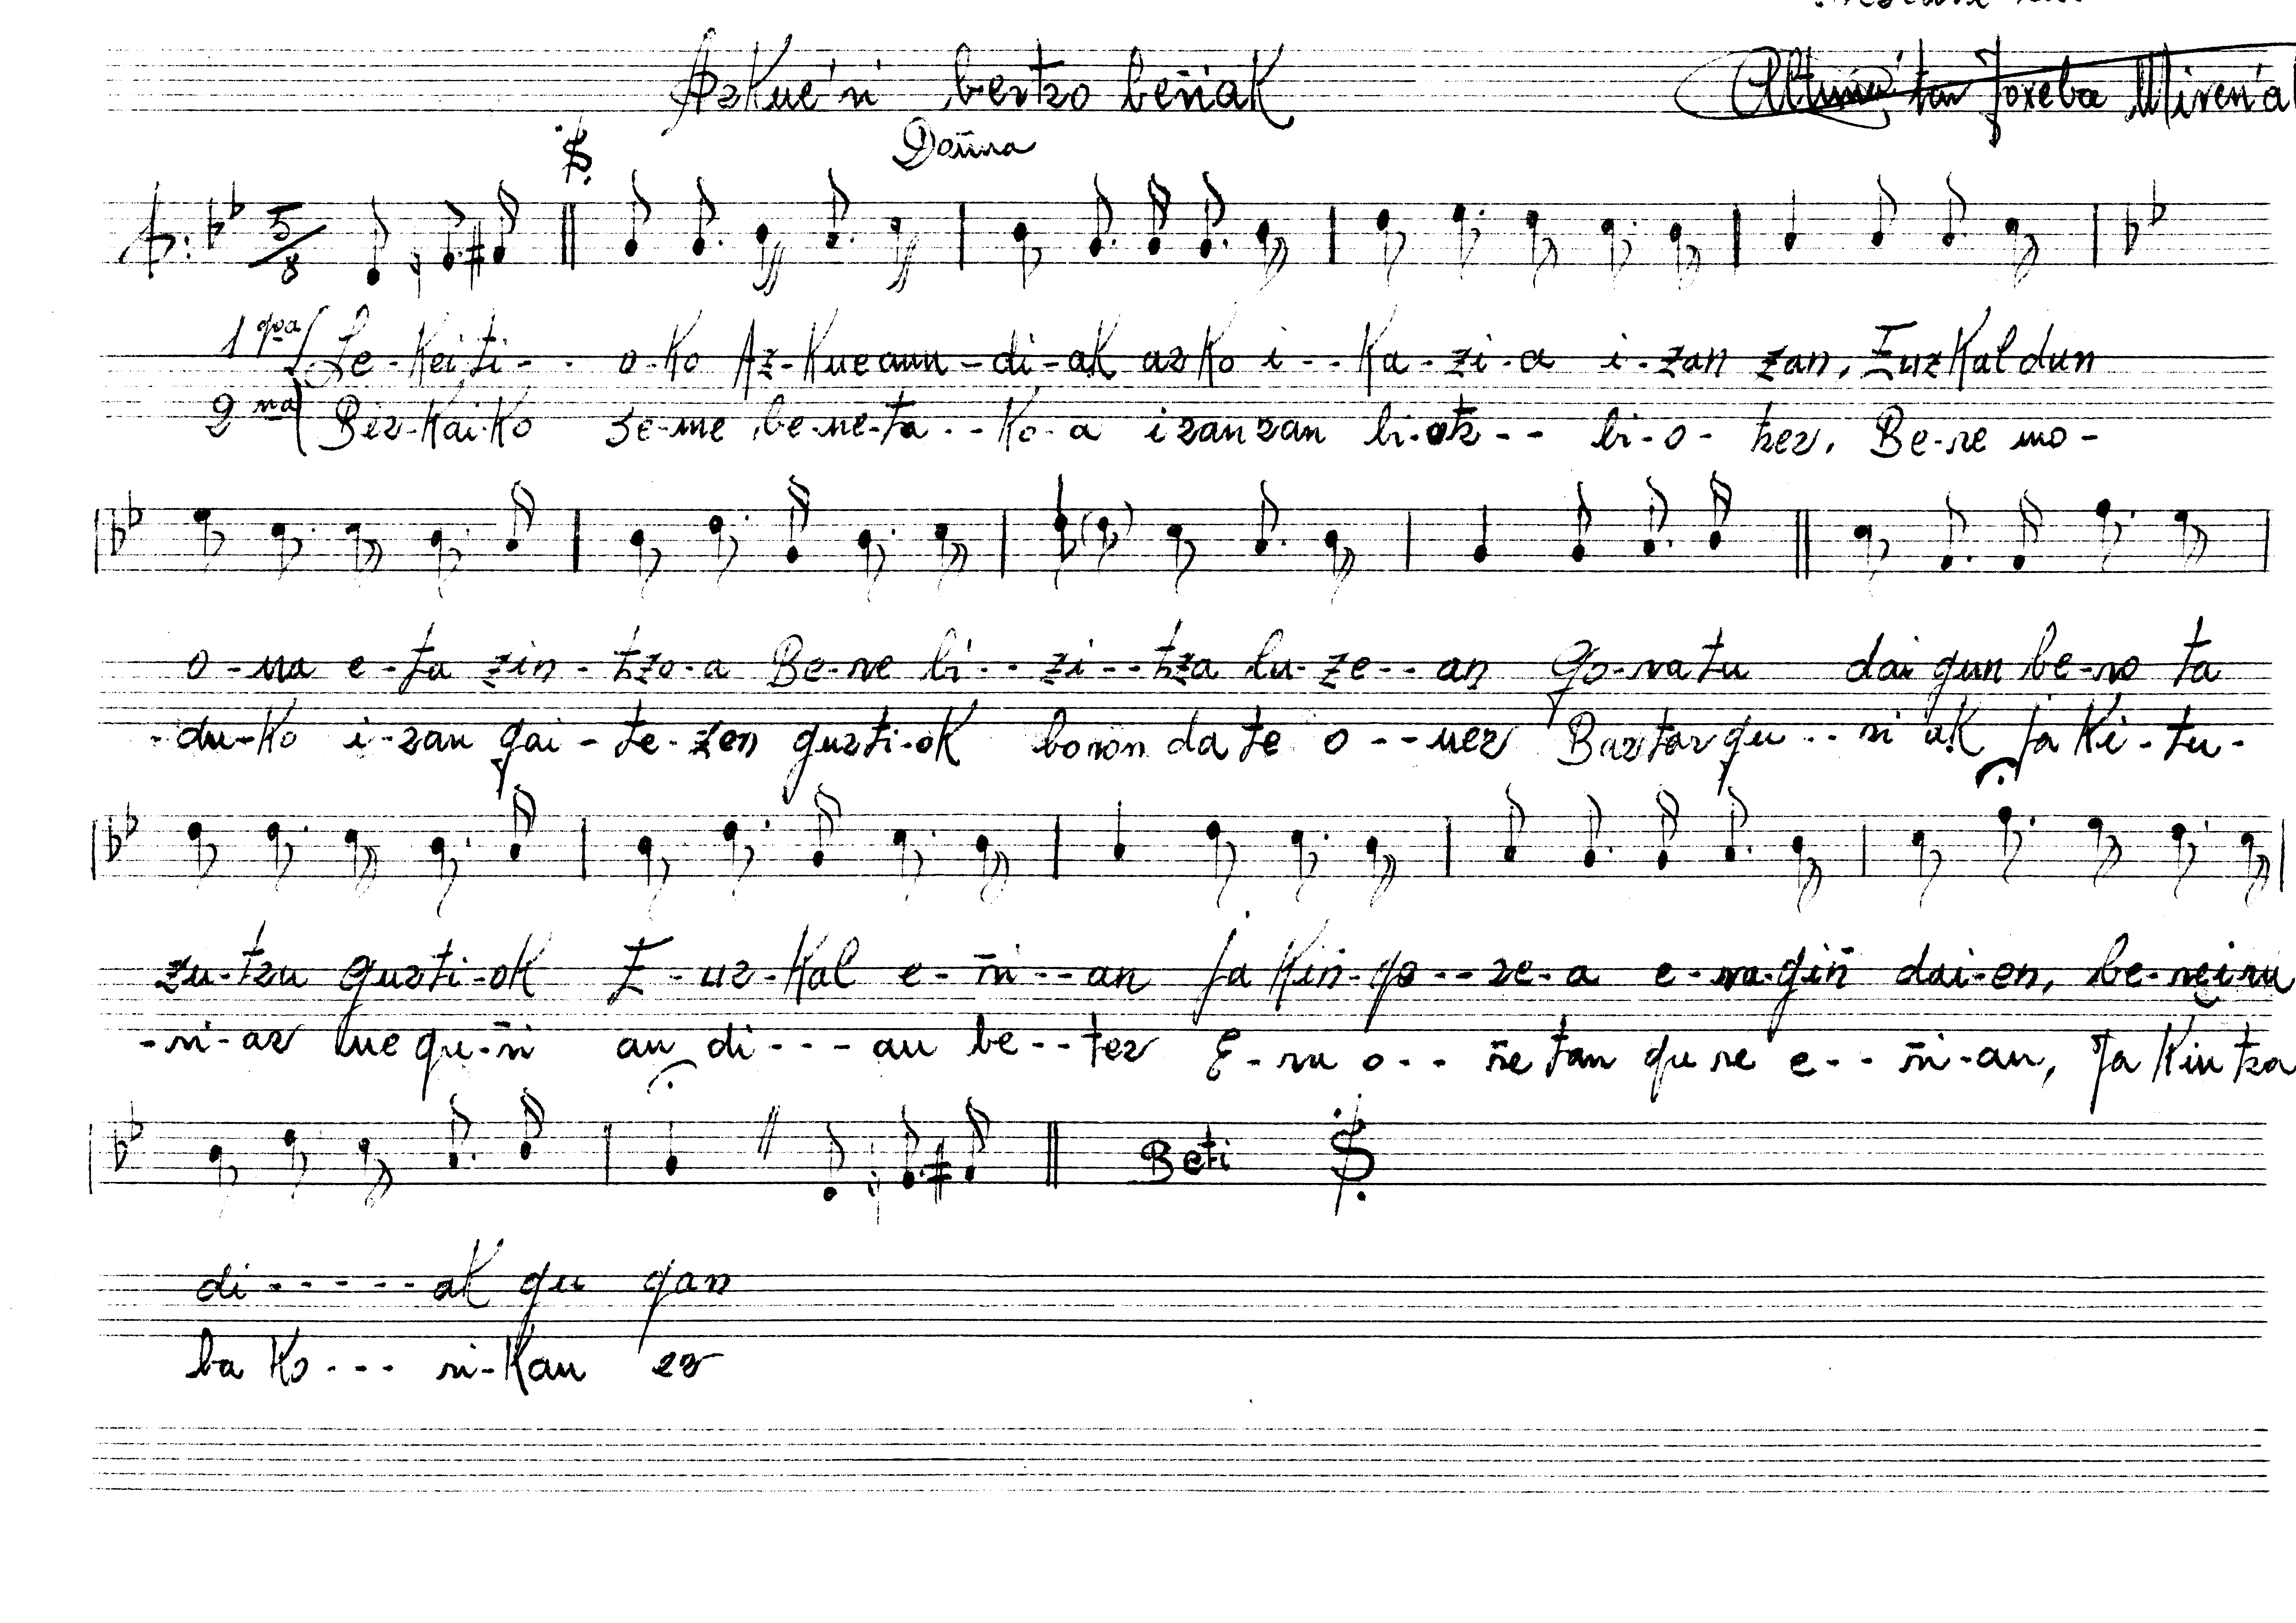 Azkue'ri bertzo beŕiak
Altuna'tar Joxeba Miren'a
Doñua
5/8
1 goa Le-kei-ti-- o-ko Az-kue aun-di-ak asko i--ka-zi-a i-zan zan, Euzkaldun
2 na Biz-kai-ko se-me be-ne-ta--ko-a izan zan bi-otz-- bi-o-tzez, Be-re mo-
o-na e-ta zin-tzo-a Be-re bi--zi--tza lu-ze--an Go-ratu daigun be-ro ta
-du-ko i-zan gai-te-zen guzti-ok boron da te o--nez Baztergu--ri ak Jaki-tu-
zu-tzu guzti-ok E-uz-kal e-r̃i--an Jakin-go--se-a e-ra-gin dai-en, be-re iru
-ri-az lue gu-r̃i an di---au be--tez E-ru o-- r̃e tan gu re e-- r̃i-an, Jakintza
di------ak gu gan
ba ko--- ri-kan ez
Beti